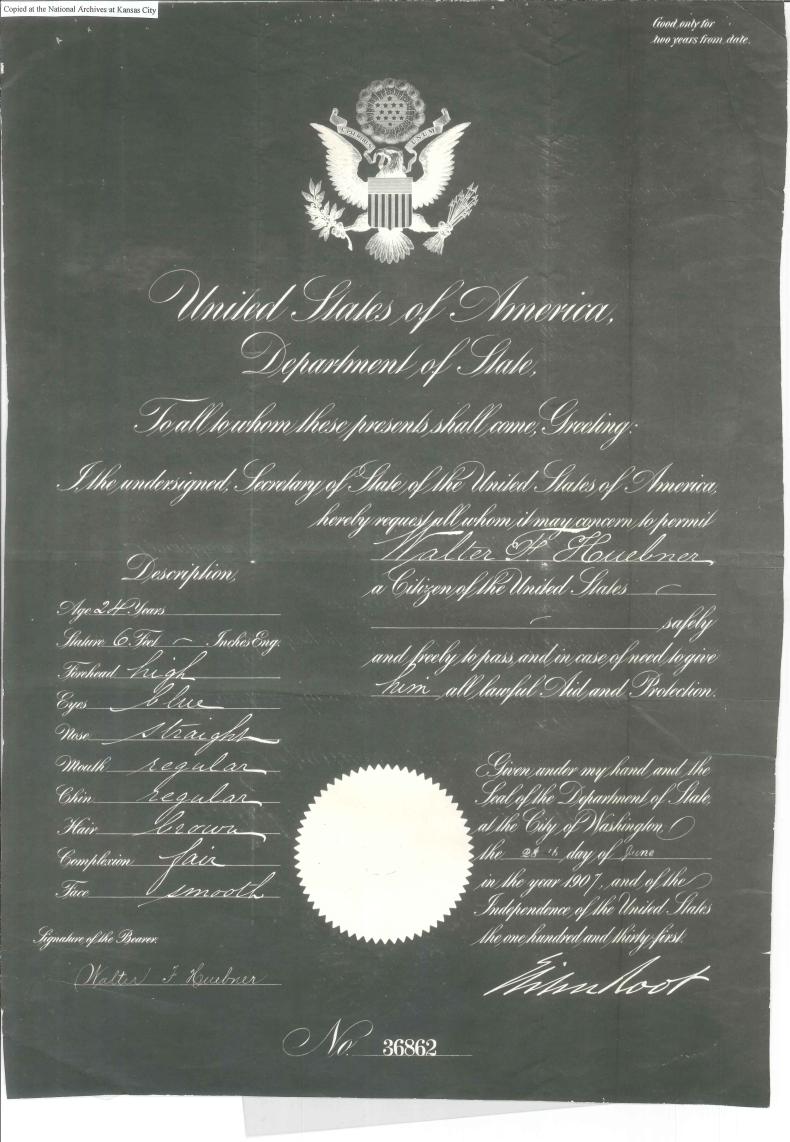 Copied at the National Archives at Kansas City
Good only for
two years from date.
E PLURIBUS UNUM
United States of America,
Department of State,
To all to whom these presents shall come, Greeting:
I, the undersigned, Secretary of State of the United States of America,
hereby request all whom it may concern to permit
Walter F. Huebner
a Citizen of the United States
safely
and freely to pass, and in case of need to give
him all lawful Aid and Protection.
Description,
Age 24 Years
Stature 6 Feet – Inches Eng.
Forehead high
Eyes blue
Nose straight
Mouth regular
Chin regular
Hair brown
Complexion fair
Face smooth
Signature of the Bearer.
Walter F Huebner
Given under my hand and the
Seal of the Department of State,
at the City of Washington,
the day of June
in the year 1907, and of the
Independence of the United States
the one hundred and thirty-first.
Elihu Root
No. 36862